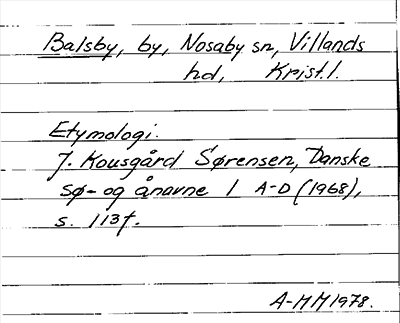 Balsby, by, Nosaby sn, Villands
hd, Krist.l.
Etymologi.
J. Kousgård Sørensen, Danske
sø- og ånavne 1 A-D (1968),
s. 113f.
A-MM1978.